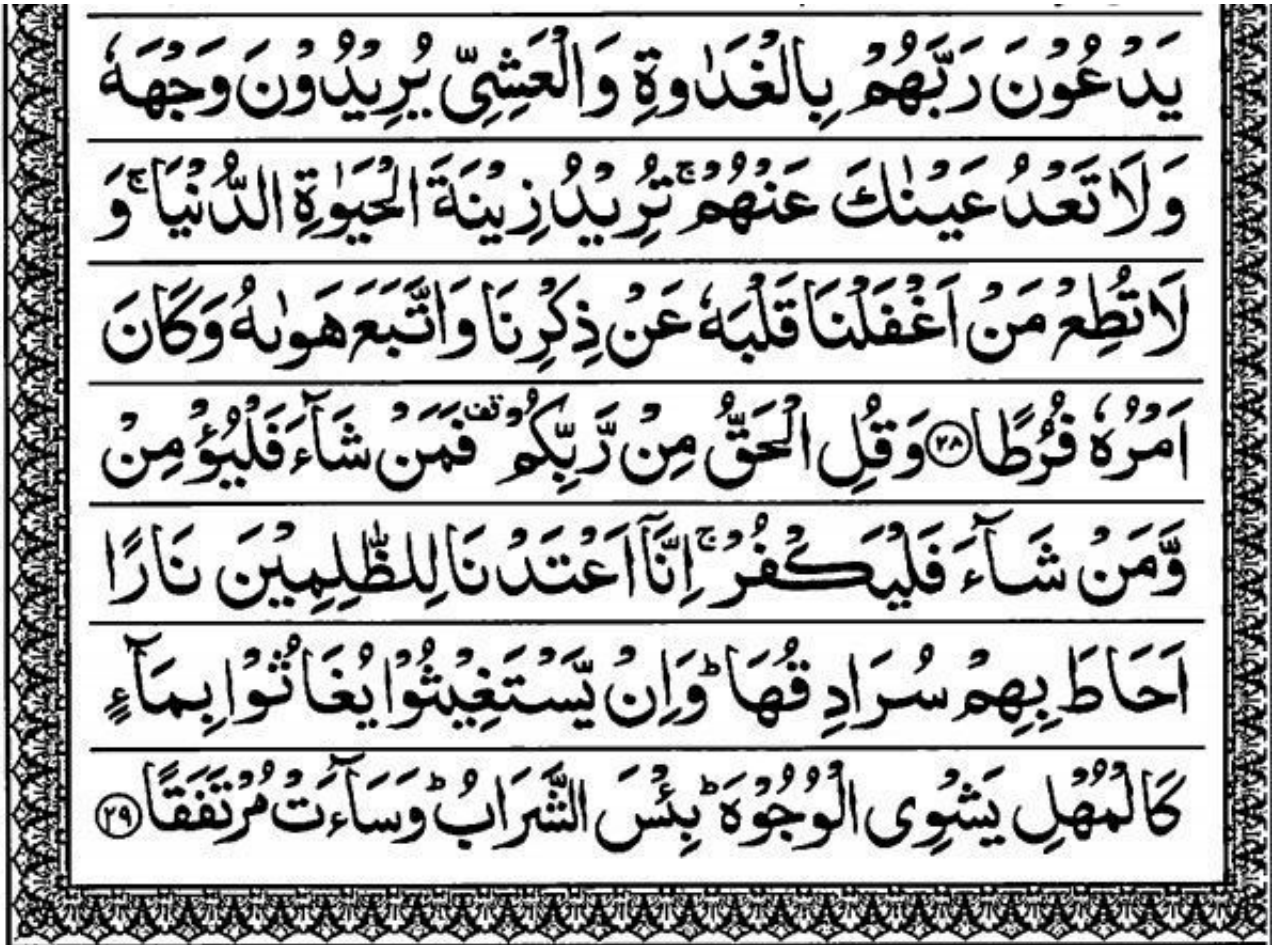 يَدْعُوْنَ رَبَّهُمْ بِالْغَدٰوةِ وَالْعَشِيِّ يُرِيْدُوْنَ وَجْهَهٗ
وَلَا تَعْدُ عَيْنٰكَ عَنْهُمْ ۚ تُرِيْدُ زِيْنَةَ الْحَيٰوةِ الدُّنْيَا ۚ وَ
لَا تُطِعْ مَنْ اَغْفَلْنَا قَلْبَهٗ عَنْ ذِكْرِنَا وَاتَّبَعَ هَوٰىهُ وَكَانَ
اَمْرُهٗ فُرُطًا ﴿۲۸﴾ وَقُلِ الْحَقُّ مِنْ رَّبِّكُمْ ۟ قف فَمَنْ شَآءَ فَلْيُؤْمِنْ
وَّمَنْ شَآءَ فَلْيَكْفُرْ ۚ اِنَّآ اَعْتَدْنَا لِلظّٰلِمِيْنَ نَارًا
اَحَاطَ بِهِمْ سُرَادِقُهَا ؕ وَاِنْ يَّسْتَغِيْثُوْا يُغَاثُوْا بِمَآءٍ
كَالْمُهْلِ يَشْوِى الْوُجُوْهَ ؕ بِئْسَ الشَّرَابُ ؕ وَسَآءَتْ مُرْتَفَقًا ﴿۲۹﴾